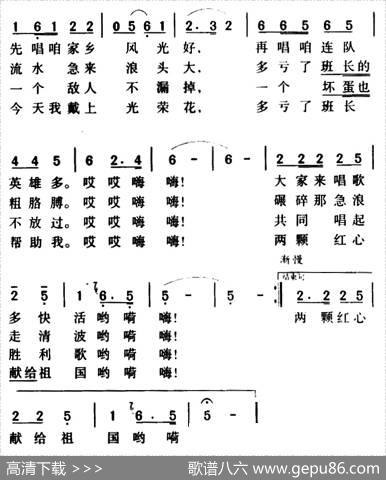 1 6 1 2 2 | 0 5 6 1 | 2 · 3 2 | 6 6 5 6 5
先唱咱家乡 风光好, 再唱咱连队
流水急来 浪头大, 多亏了班长的
一个敌人 不漏掉, 一个 坏蛋也
今天我戴上 光荣花, 多亏了班长
4 4 5 | 6 2·4 | 6 - | 6 - | 2 2 2 2 5
英雄多。哎哎嗨嗨! 大家来唱歌
粗胳膊。哎哎嗨嗨! 碾碎那急浪
不放过。哎哎嗨嗨! 共同唱起
帮助我。哎哎嗨嗨! 两颗红心
渐慢
结束句
2 5 | 1 6·5 | 5 - | 5 - :| 2·2 2 5
多快活哟嗬嗨! 两颗红心
走清波哟嗬嗨!
胜利歌哟嗬嗨!
献给祖国哟嗬嗨!
2 2 5 | 1 6·5 | 5 -
献给祖 国哟嗬
高清下载 >>> 歌谱八六 www.gepu86.com